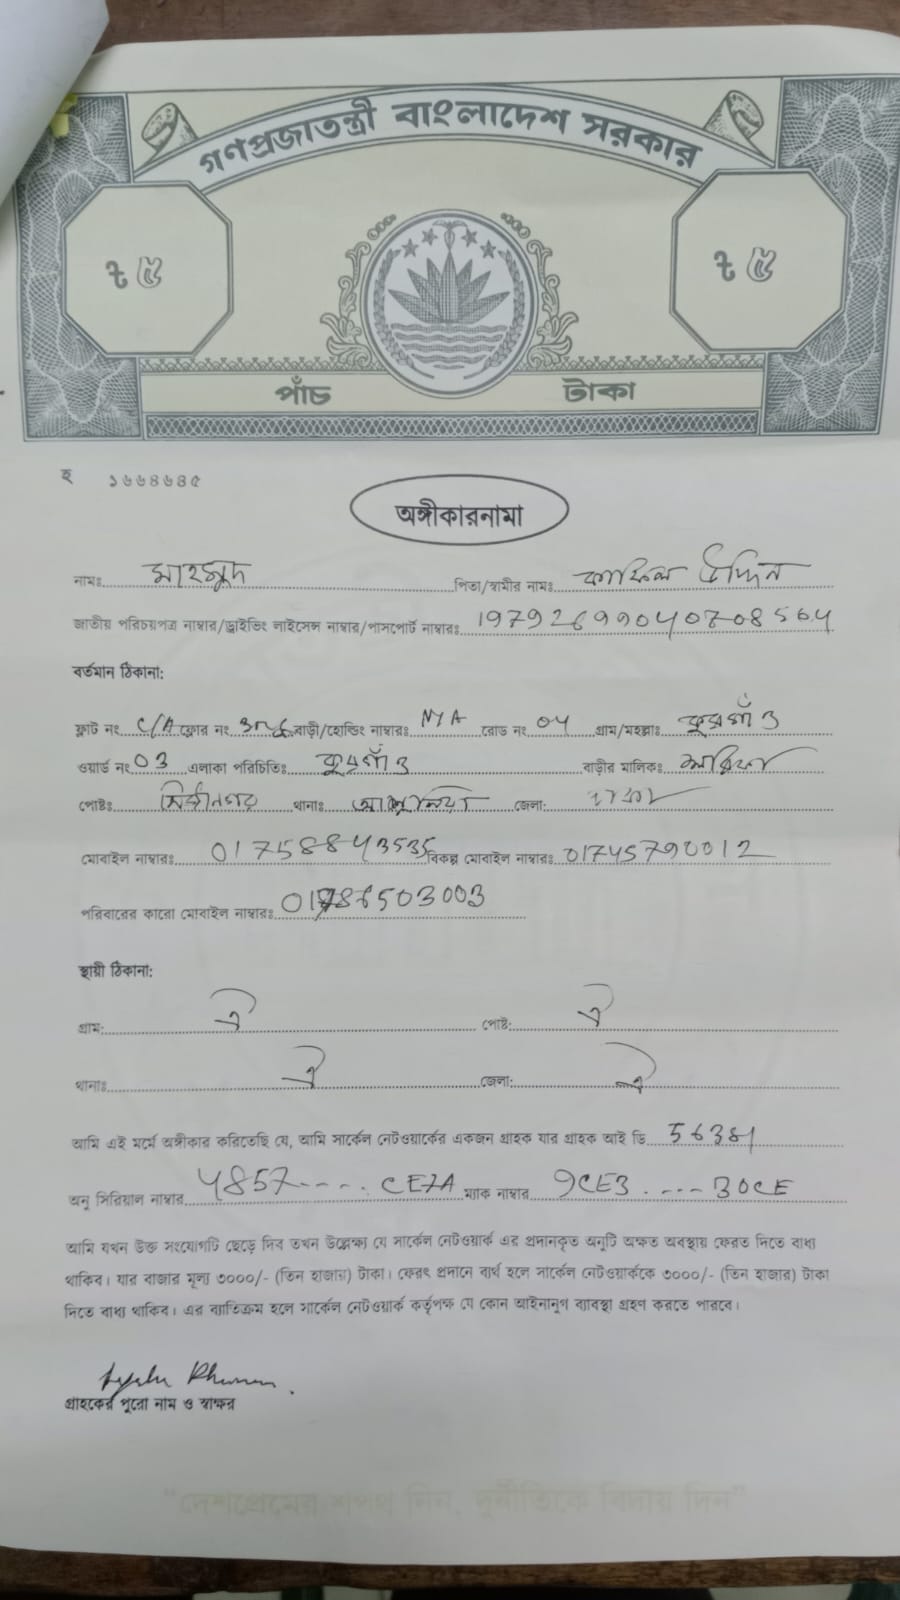 গণপ্রজাতন্ত্রী বাংলাদেশ সরকার
৳ ৫ ৳ ৫
পাঁচ টাকা
হ ১৬৬৪৬৪৫
অঙ্গীকারনামা
নামঃ মাহমুদ পিতা/স্বামীর নামঃ উদ্দিন
জাতীয় পরিচয়পত্র নাম্বার/ড্রাইভিং লাইসেন্স নাম্বার/পাসপোর্ট নাম্বারঃ
বর্তমান ঠিকানা:
ফ্লাট নং C/A ফ্লোর নং বাড়ী/হোল্ডিং নাম্বারঃ N/A রোড নং 04 গ্রাম/মহল্লাঃ
ওয়ার্ড নং 03 এলাকা পরিচিতিঃ বাড়ীর মালিকঃ
পোষ্টঃ থানাঃ আশুলিয়া জেলা: ঢাকা
মোবাইল নাম্বারঃ 01758843535 বিকল্প মোবাইল নাম্বারঃ 01745790012
পরিবারের কারো মোবাইল নাম্বারঃ
স্থায়ী ঠিকানা:
গ্রাম: ঐ পোষ্ট: ঐ
থানাঃ ঐ জেলা: ঐ
আমি এই মর্মে অঙ্গীকার করিতেছি যে, আমি সার্কেল নেটওয়ার্কের একজন গ্রাহক যার গ্রাহক আই ডি 56381
অনু সিরিয়াল নাম্বার 4857----. CE7A ম্যাক নাম্বার 9CE3 . --- 30CE
আমি যখন উক্ত সংযোগটি ছেড়ে দিব তখন উল্লেক্ষ্য যে সার্কেল নেটওয়ার্ক এর প্রদানকৃত অনুটি অক্ষত অবস্থায় ফেরত দিতে বাধ্য
থাকিব। যার বাজার মূল্য ৩০০০/- (তিন হাজার) টাকা। ফেরৎ প্রদানে ব্যর্থ হলে সার্কেল নেটওয়ার্ককে ৩০০০/- (তিন হাজার) টাকা
দিতে বাধ্য থাকিব। এর ব্যাতিক্রম হলে সার্কেল নেটওয়ার্ক কর্তৃপক্ষ যে কোন আইনানুগ ব্যাবস্থা গ্রহণ করতে পারবে।
গ্রাহকের পুরো নাম ও স্বাক্ষর
"দেশপ্রেমের শপথ নিন, দুর্নীতিকে বিদায় দিন"